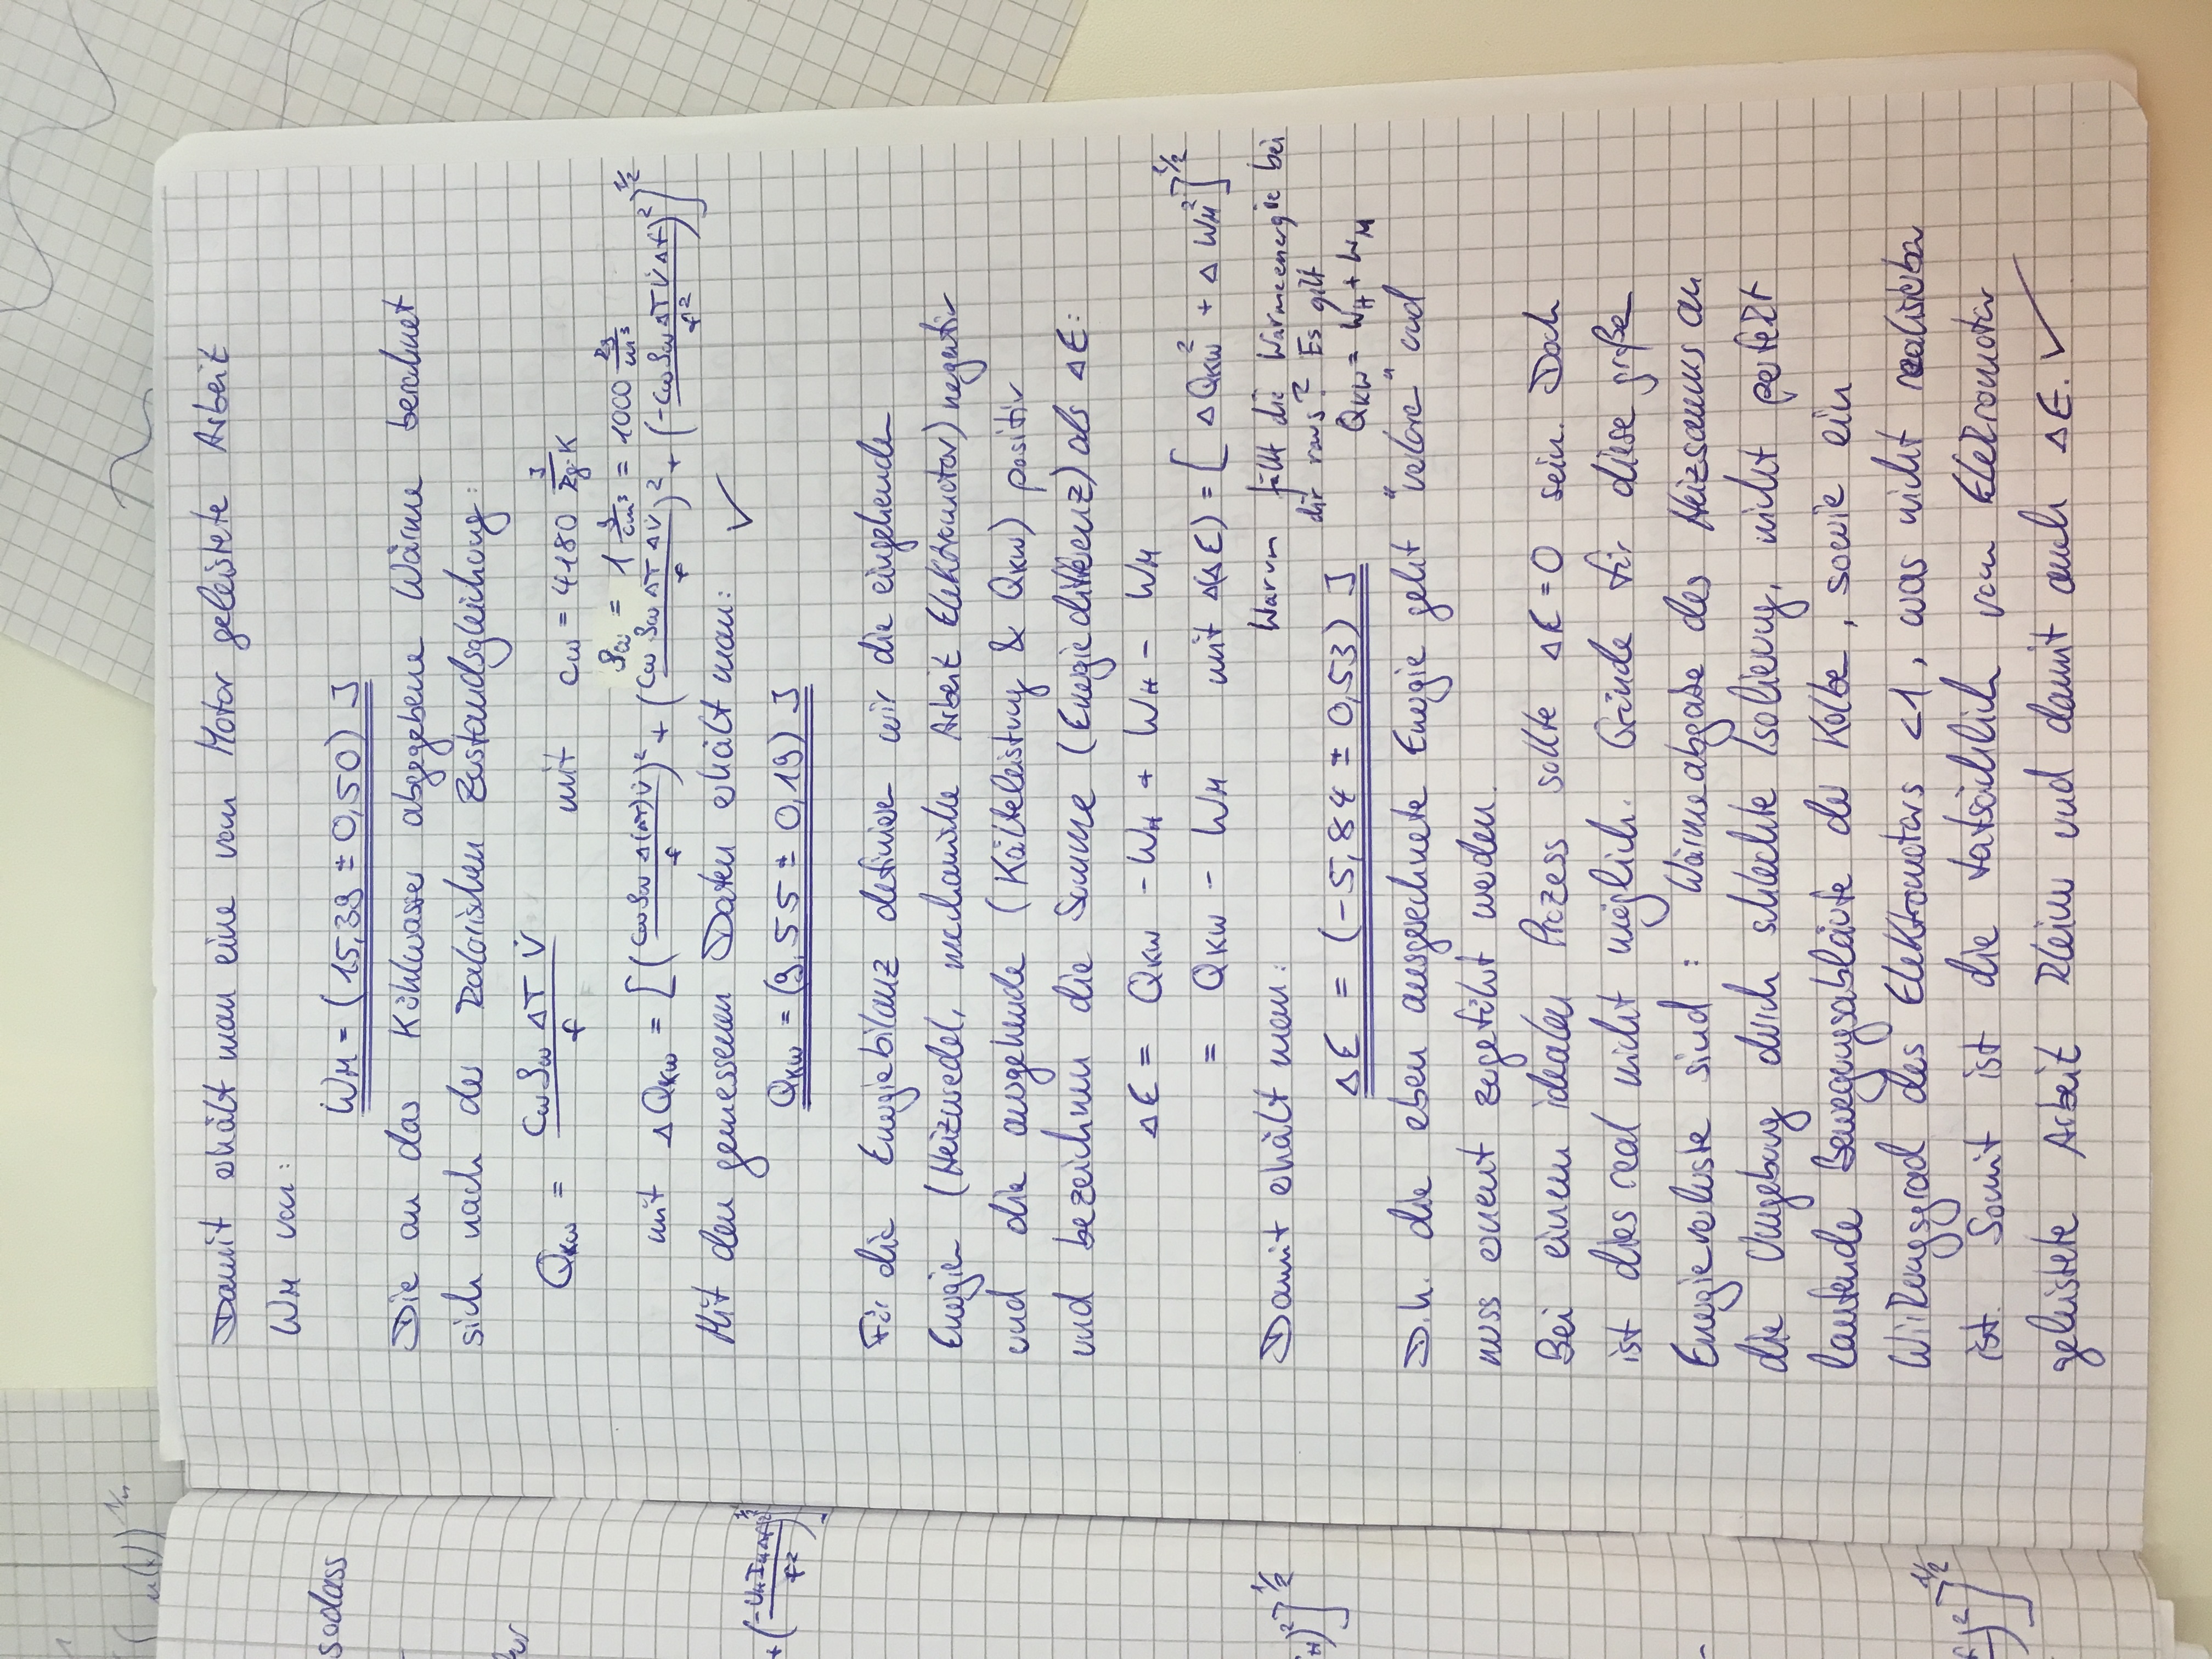 (u(x))^1/n
sodass
Damit erhält man eine vom Motor geleistete Arbeit
W_M von:
W_M = (15,39 ± 0,50) J
Die an das Kühlwasser abgegebene Wärme berechnet
sich nach der kalorischen Zustandsgleichung:
Q_KW = c_w ρ_w ΔT V̇ / f mit c_w = 4180 J/kg·K
ρ_w = 1 g/cm³ = 1000 kg/m³
mit ΔQ_KW = [(c_w ρ_w Δ(ΔT) V̇ / f)² + (c_w ρ_w ΔT ΔV̇ / f)² + (-c_w ρ_w ΔT V̇ Δf / f²)²]^1/2
Mit den gemessenen Daten erhält man: ✓
+ (-U_H I_H Δf / f²)²]^1/2
Q_KW = (9,55 ± 0,19) J
Für die Energiebilanz definieren wir die eingehenden
Energien (Heizwedel, mechanische Arbeit Elektromotor) negativ
und die ausgehende (Kälteleistung & Q_KW) positiv
und bezeichnen die Summe (Energiedifferenz) als ΔE:
ΔE = Q_KW - W_H + W_H - W_M
= Q_KW - W_M mit Δ(ΔE) = [ΔQ_KW² + ΔW_M²]^1/2
Damit erhält man:
Warum fällt die Wärmeenergie bei
dir raus? Es gilt
Q_KW = W_H + W_M
ΔE = (-5,84 ± 0,53) J
D.h. die eben ausgerechnete Energie geht "verloren" und
muss erneut zugeführt werden.
Bei einem idealen Prozess sollte ΔE = 0 sein. Doch
ist dies real nicht möglich. Gründe für diese große
Energieverluste sind : Wärmeabgabe des Heizraums an
die Umgebung durch schlechte Isolierung, nicht perfekt
laufende Bewegungsabläufe der Kolben, sowie ein
Wirkungsgrad des Elektromotors <1, was nicht realisierbar
ist. Somit ist die tatsächlich vom Elekromotor
geleistete Arbeit kleiner und damit auch ΔE. ✓